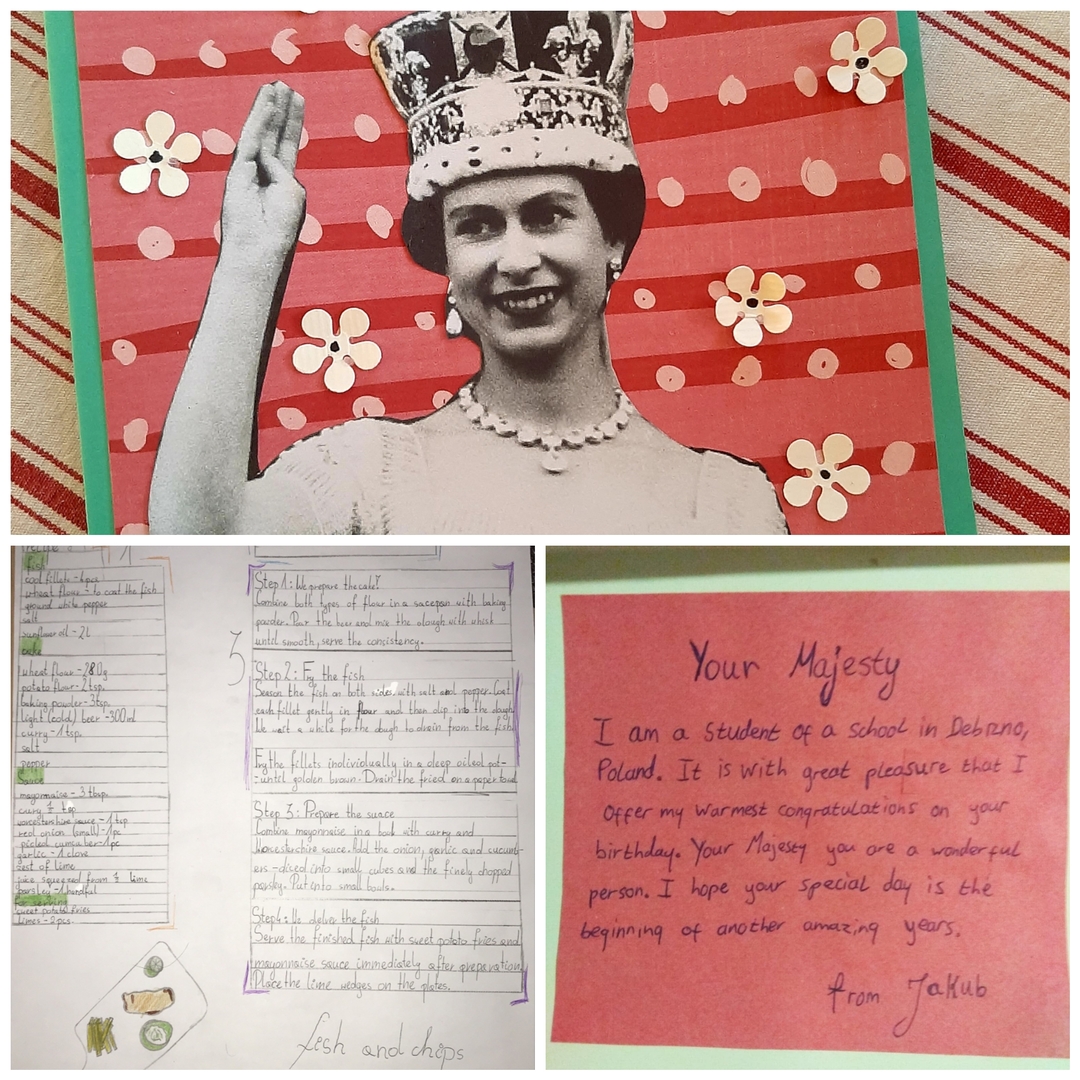 fish
cool fillets - 4pcs
wheat flour - to coat the fish
ground white pepper
salt
sunflower oil - 2L
cake
wheat flour - 280g
potato flour - 2 tsp.
baking powder - 3 tsp.
light (cold) beer - 300ml
curry - 1 tsp.
salt
pepper
Sauce
mayonnaise - 3 tbsp.
curry ½ tsp
worcestershire sauce - 1 tsp
red onion (small) - 1pc
picled cumcumber - 1pc
garlic - 1 clove
zest of lime
juice squeezed from ½ lime
parsley - 1 handful
for serving
sweet potato fries
limes - 2pcs.
3
Step 1: We prepare the cake?
Combine both types of flour in a sacepan with baking
powder. Pour the beer and mix the dough with whisk
until smooth, serve the concistency.
Step 2: Fry the fish
Season the fish on both sides with salt and pepper. Coat
each fillet gently in flour and then dip into the dough
We wait a while for the dough to drain from the fish.
Fry the fillets individually in a deep oiled pot-
-until golden brown. Drain the fried on a paper towel
Step 3: Prepare the suace
Combine mayonnaise in a bowl with curry and
worcestershire sauce. Add the onion, garlic and cucumb-
ers - diced into small cubes and the finely chopped
parsley. Put into small bowls.
Step 4: We deliver the fish
Serve the finished fish with sweet potato fries and
mayonnaise sauce immediately after preparation.
Place the lime wedges on the plates.
fish and chips
Your Majesty
I am a student of a school in Debrzno,
Poland. It is with great pleasure that I
offer my warmest congratulations on your
birthday. Your Majesty you are a wonderful
person. I hope your special day is the
beginning of another amazing years.
from Jakub